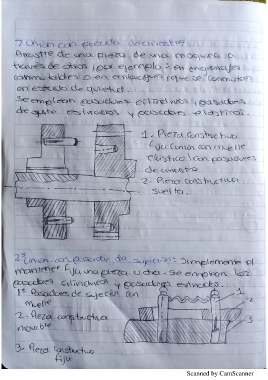 7 Unión con pasador de arrastre
Arrastre de una pieza de una maquina a
traves de otros, por ejemplo: en engranajes
conmutables o en embragues que se conmutan
en estado de quietud.
Se emplean pasadores cilindricos, pasadores
de ajuste estriados y pasadores elasticos.
1- Pieza constructiva
fija (union con muelle
elastico) con pasadores
de arrastre
2- Pieza constructiva
suelta.
2º Union con pasador de sujecion: Simplemente
mantener fija una pieza u otra. Se emplean los
pasadores cilindricos y pasadores estriados.
1º Pasadores de sujecion con
muelle
2- Pieza constructiva
movible
3- Pieza constructiva
fija
1
2
3
Scanned by CamScanner